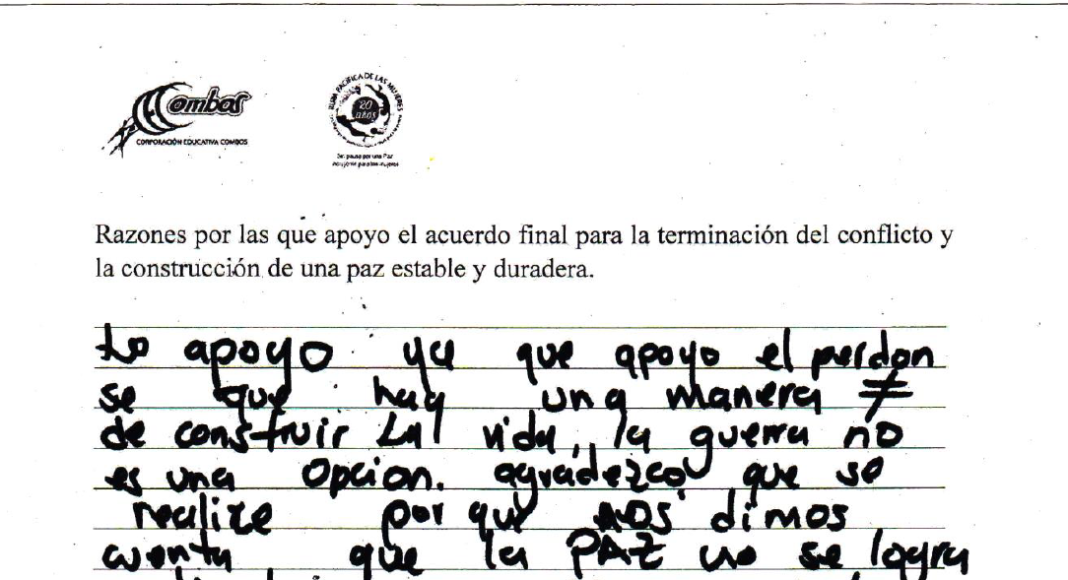 Combos
CORPORACIÓN EDUCATIVA COMBOS
RUTA PACÍFICA DE LAS MUJERES
20
años
Razones por las que apoyo el acuerdo final para la terminación del conflicto y
la construcción de una paz estable y duradera.
Lo apoyo ya que apoyo el perdon
se que hay una manera ≠
de construir La vida, la guerra no
es una opcion. agradezco que se
realize por que nos dimos
cuenta que la PAZ no se logra